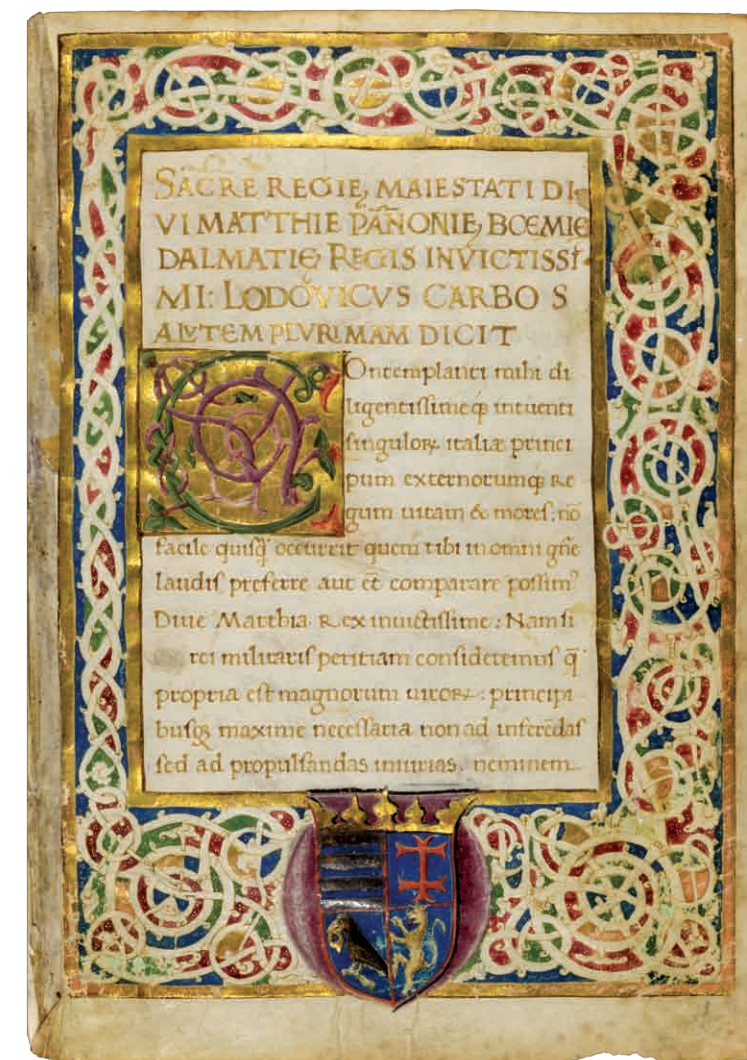 SACRE REGIE, MAIESTATI DI
VI MATTHIE PAÑONIE, BOEMIE
DALMATIĘ REGIS INVICTISSI
MI: LODOVICVS CARBO S
ALVTEM PLVRIMAM DICIT
COntemplanti mihi di
ligentissimeq̃ intuenti
singuloꝝ italiæ princi
pum externorumq̃ Re
gum uitam & mores: nō
facile quisq̃ occurrit quem tibi in omni gñe
laudis preferre aut ēt comparare possim?
Diue Matthia Rex inuictissime: Nam si
rei militaris peritiam consideremus q̄
propria est magnorum uiroꝝ: principi
busqꝫ maxime necessaria non ad inferēdas
sed ad propulsandas iniurias, neminem